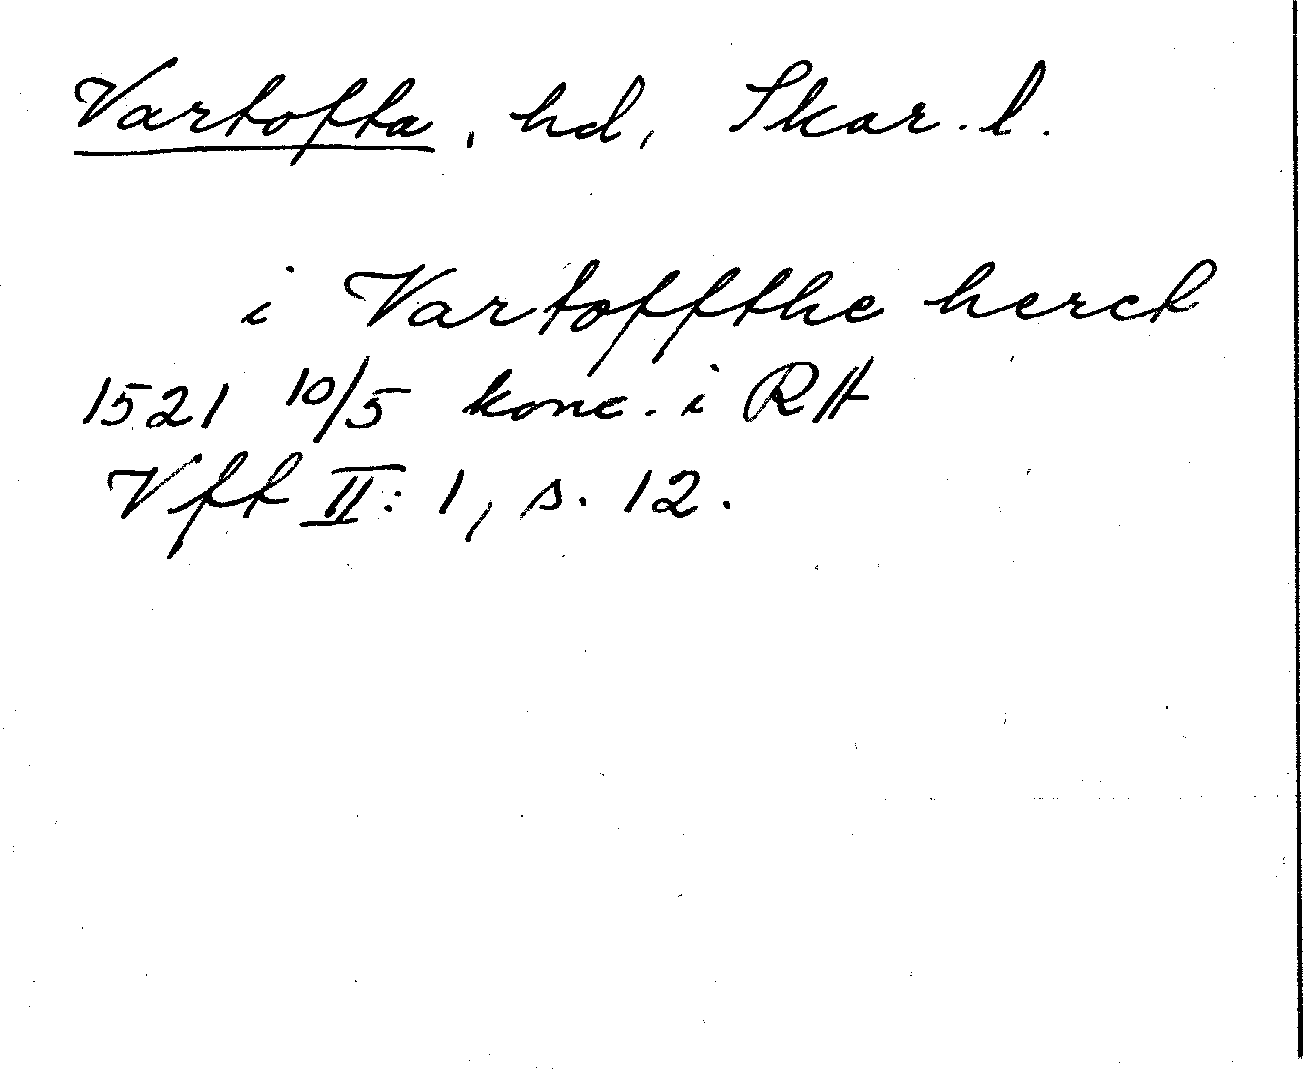 Vartofta, hd, Skar. l.
i Vartoffthe heret
1521 10/5 konc. i RA
Vft II: 1, s. 12.